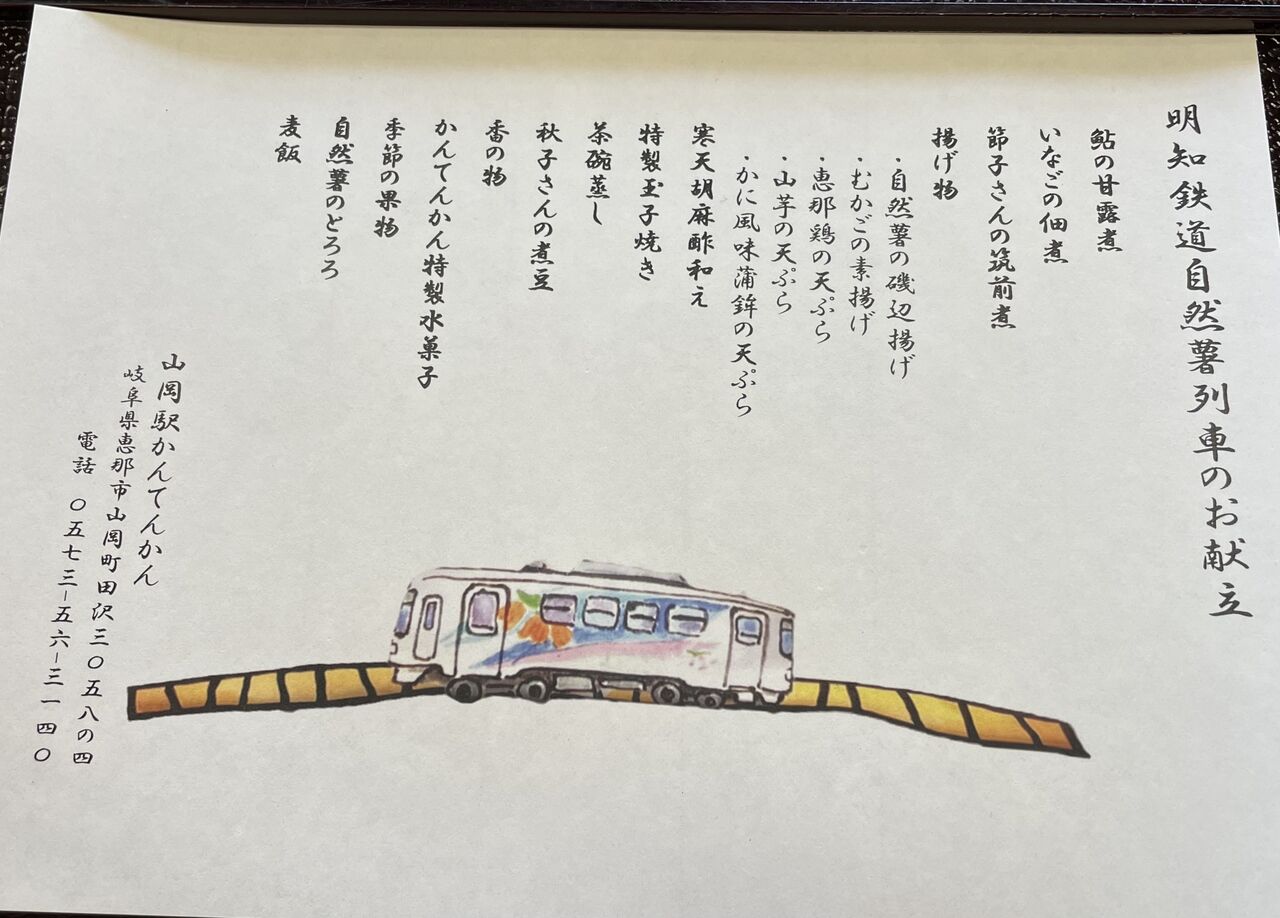 明知鉄道自然薯列車のお献立
鮎の甘露煮
いなごの佃煮
節子さんの筑前煮
揚げ物
・自然薯の磯辺揚げ
・むかごの素揚げ
・恵那鶏の天ぷら
・山芋の天ぷら
・かに風味蒲鉾の天ぷら
寒天胡麻酢和え
特製玉子焼き
茶碗蒸し
秋子さんの煮豆
香の物
かんてんかん特製水菓子
季節の果物
自然薯のとろろ
麦飯
山岡駅かんてんかん
岐阜県恵那市山岡町田沢三〇五八の四
電話 〇五七三－五六－三一四〇